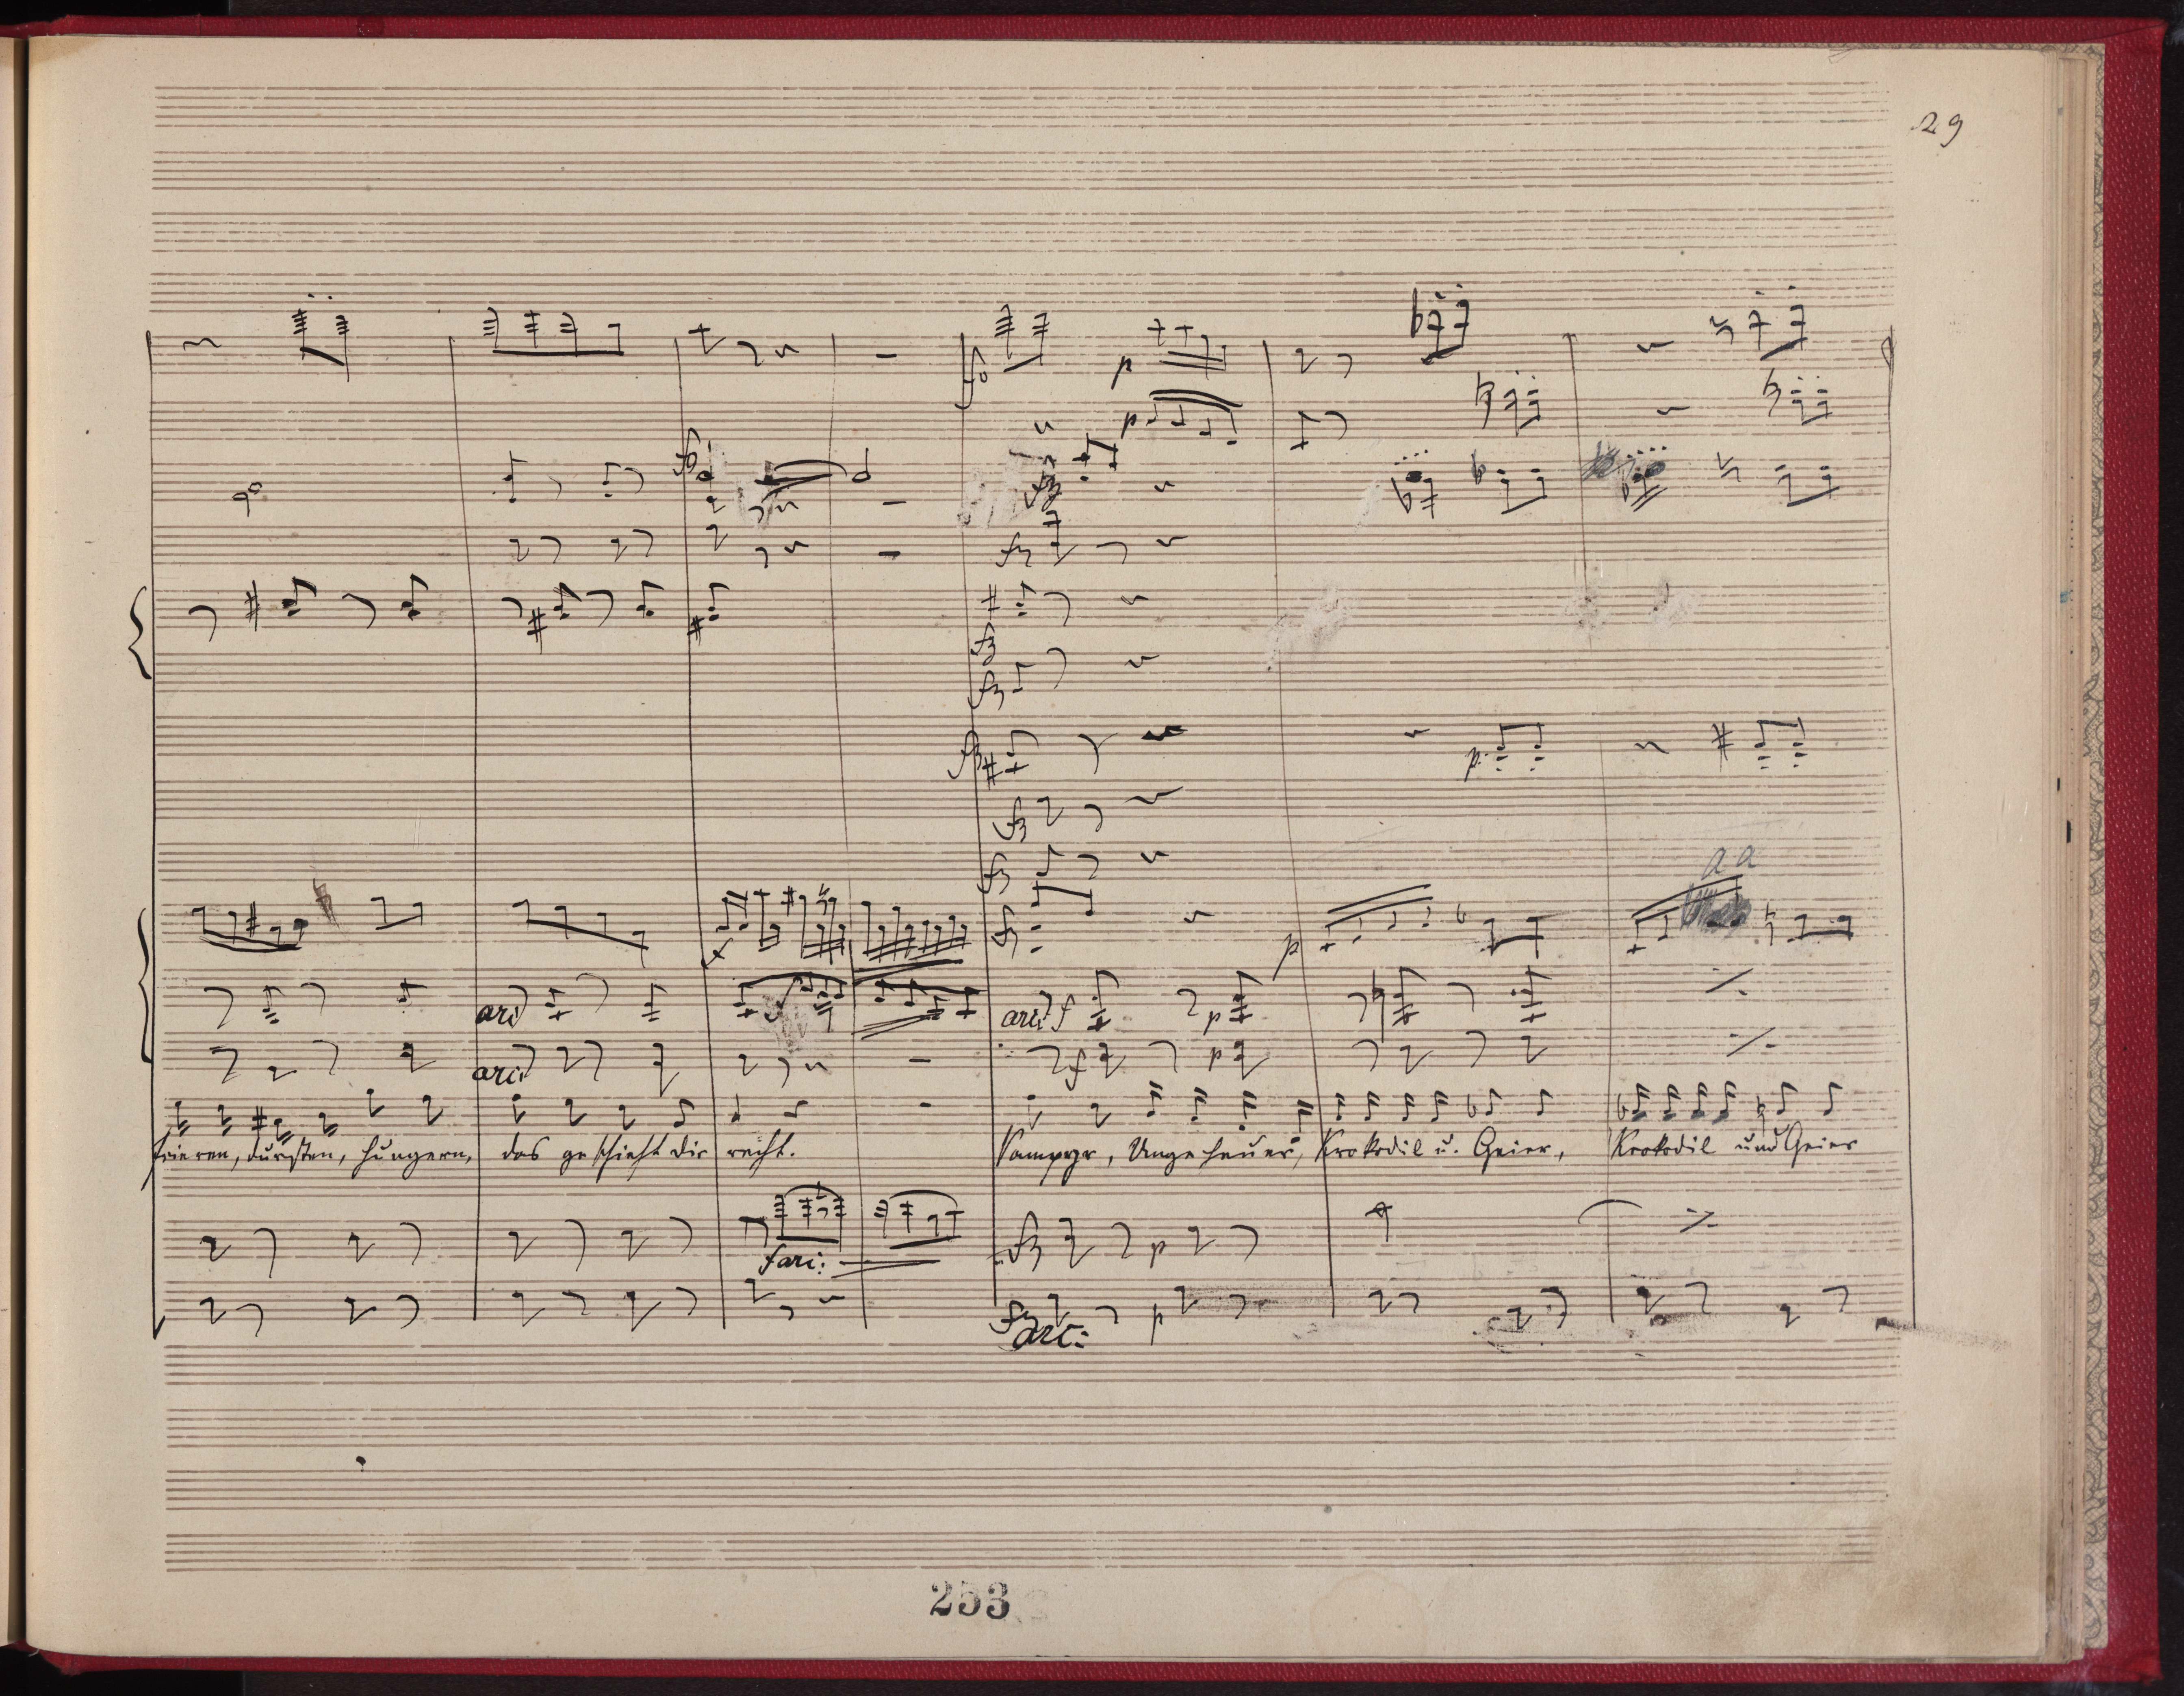 29
fz
p
p
fz
fz
fz
fz
fz
fz
p
fz
fz
fz
p
arco
arco f p
arco
f p
frieren, dursten, hungern, das geschieht dir recht. Vampyr, Ungeheuer, Krokodil u. Geier, Krokodil und Geier
fz p
fz p
arc:
253